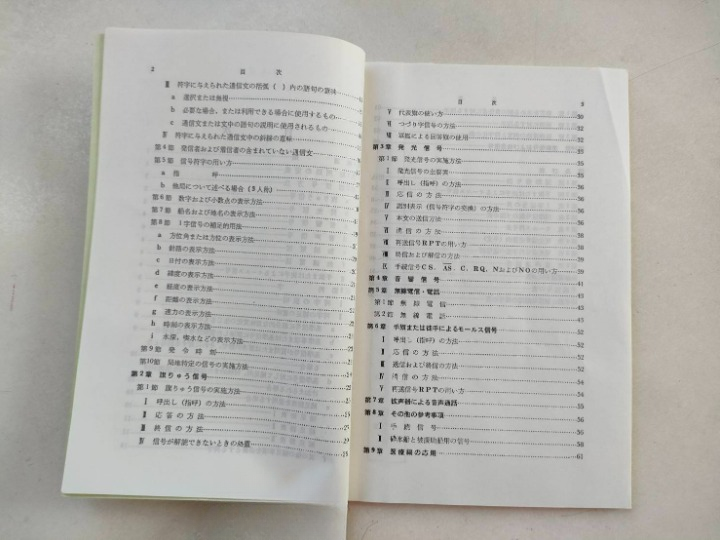 2 目次
Ⅱ 符字に与えられた通信文の括弧( )内の語句の意味
a 選択または無視
b 必要な場合、または利用できる場合に使用するもの
c 通信文または文中の語句の説明に使用されるもの
Ⅲ 符字に与えられた通信文中の斜線の意味
第4節 発信者および着信者の含まれていない通信文
第5節 信号符字の用い方
a 指呼
b 他局について述べる場合(3人称)
第6節 数字および小数点の表示方法
第7節 船名および地名の表示方法
第8節 1字信号の補足的用法
a 方位角または方位の表示方法
b 針路の表示方法
c 日付の表示方法
d 緯度の表示方法
e 経度の表示方法
f 距離の表示方法
g 速力の表示方法
h 時刻の表示方法
i 水深、喫水などの表示方法
第9節 発令時刻
第10節 局地特定の信号の実施方法
第2章 旗りゅう信号
第1節 旗りゅう信号の実施方法
Ⅰ 呼出し(指呼)の方法
Ⅱ 応答の方法
Ⅲ 終信の方法
Ⅳ 信号が解読できないときの処置
目次
Ⅴ 代表旗の使い方 30
Ⅵ つづり字信号の方法 32
第3章 発光信号
第1節 発光信号の実施方法
Ⅰ 発光信号の主要部
Ⅱ 呼出し(指呼)の方法
Ⅲ 応信の方法
Ⅳ 識別表示(信号符字の交換)の方法
Ⅴ 本文の送信方法
Ⅵ 送信の方法
Ⅶ 再送信号RPTの用い方
Ⅸ 手続信号CS、AS、C、RQ、NおよびNOの用い方 39
第4章 音響信号 41
第5章 無線電信・電話 43
第1節 無線電信 43
第2節 無線電話
第6章 手旗または徒手によるモールス信号 52
Ⅰ 呼出し(指呼)の方法 52
Ⅱ 応信の方法 52
Ⅳ 消信の方法 54
Ⅴ 再送信号RPTの用い方 54
第7章 拡声器による音声通話 55
第8章 その他の参考事項 56
Ⅰ 手旗信号 56
第9章 医療編の応用 61